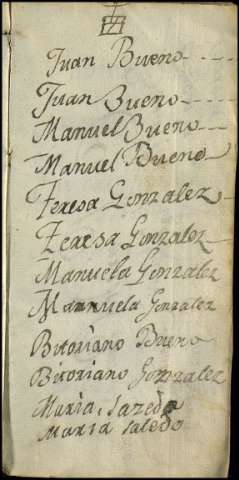 Juan Bueno
Juan Bueno
Manuel Bueno
Manuel Bueno
Teresa Gonzalez
Teresa Gonzalez
Manuela Gonzalez
Manuela Gonzalez
Bitoriano Bueno
Bitoriano Gonzalez
Maria Sazedo
Maria Saledo